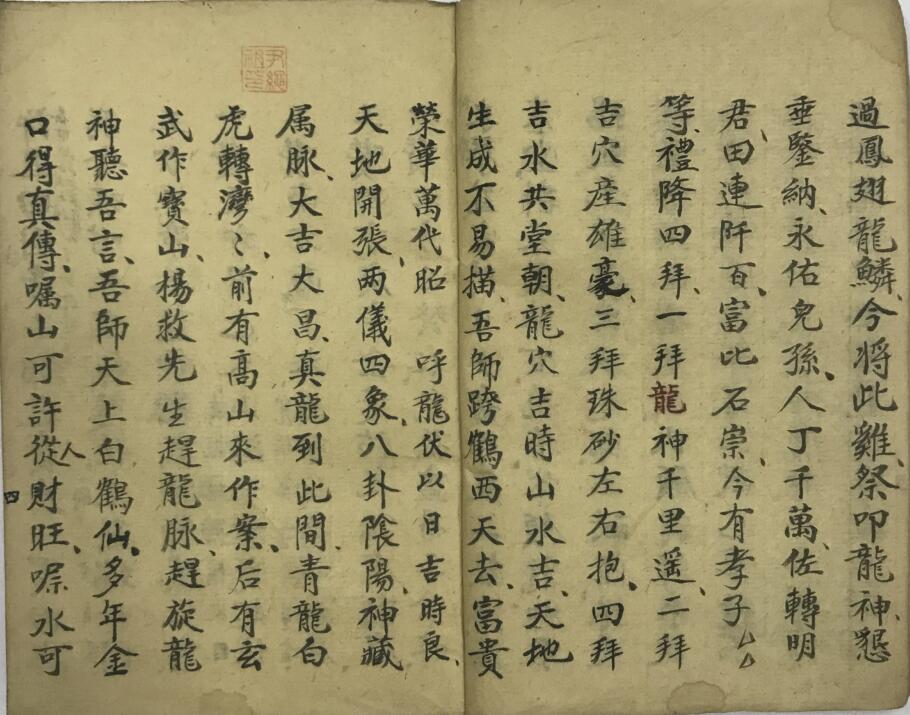 過鳳翅龍鱗、今將此雞、祭叩龍神、懇
垂鑒納、永佑兒孫、人丁千萬、佐轉明
君、田連阡百、富比石崇、今有孝子厶厶
等、禮降四拜、一拜龍神千里遥、二拜
吉穴産雄豪、三拜珠砂左右抱、四拜
吉水共堂朝、龍穴吉時山水吉、天地
生成不易描、吾師跨鶴西天去、富貴
榮華萬代昭　呼龍伏以日吉時良、
天地開張、两儀四象、八卦隂陽、神藏
属脉、大吉大昌、真龍到此間、青龍白
虎轉灣〻、前有高山來作案、后有玄
武作寶山、楊救先生趕龍脉、趕旋龍
神聽吾言、吾師天上白鶴仙、多年金
口得真傳、嘱山可許從人財旺、嘱水可
四